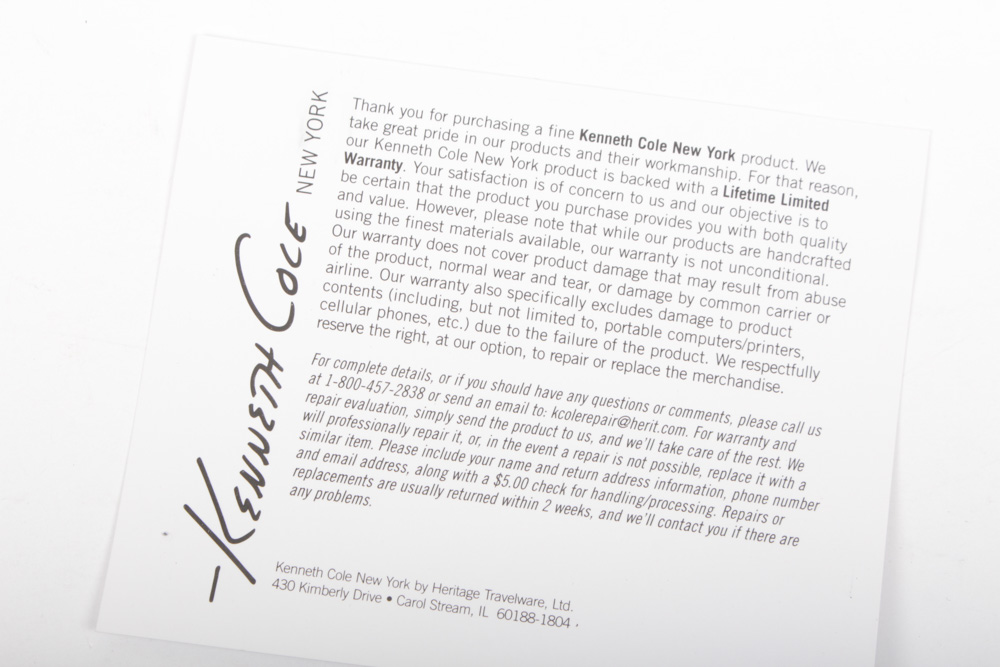 KENNETH COLE
NEW YORK
Thank you for purchasing a fine Kenneth Cole New York product. We
take great pride in our products and their workmanship. For that reason,
our Kenneth Cole New York product is backed with a Lifetime Limited
Warranty. Your satisfaction is of concern to us and our objective is to
be certain that the product you purchase provides you with both quality
and value. However, please note that while our products are handcrafted
using the finest materials available, our warranty is not unconditional.
Our warranty does not cover product damage that may result from abuse
of the product, normal wear and tear, or damage by common carrier or
airline. Our warranty also specifically excludes damage to product
contents (including, but not limited to, portable computers/printers,
cellular phones, etc.) due to the failure of the product. We respectfully
reserve the right, at our option, to repair or replace the merchandise.
For complete details, or if you should have any questions or comments, please call us
at 1-800-457-2838 or send an email to: kcolerepair@herit.com. For warranty and
repair evaluation, simply send the product to us, and we'll take care of the rest. We
will professionally repair it, or, in the event a repair is not possible, replace it with a
similar item. Please include your name and return address information, phone number
and email address, along with a $5.00 check for handling/processing. Repairs or
replacements are usually returned within 2 weeks, and we'll contact you if there are
any problems.
Kenneth Cole New York by Heritage Travelware, Ltd.
430 Kimberly Drive • Carol Stream, IL 60188-1804